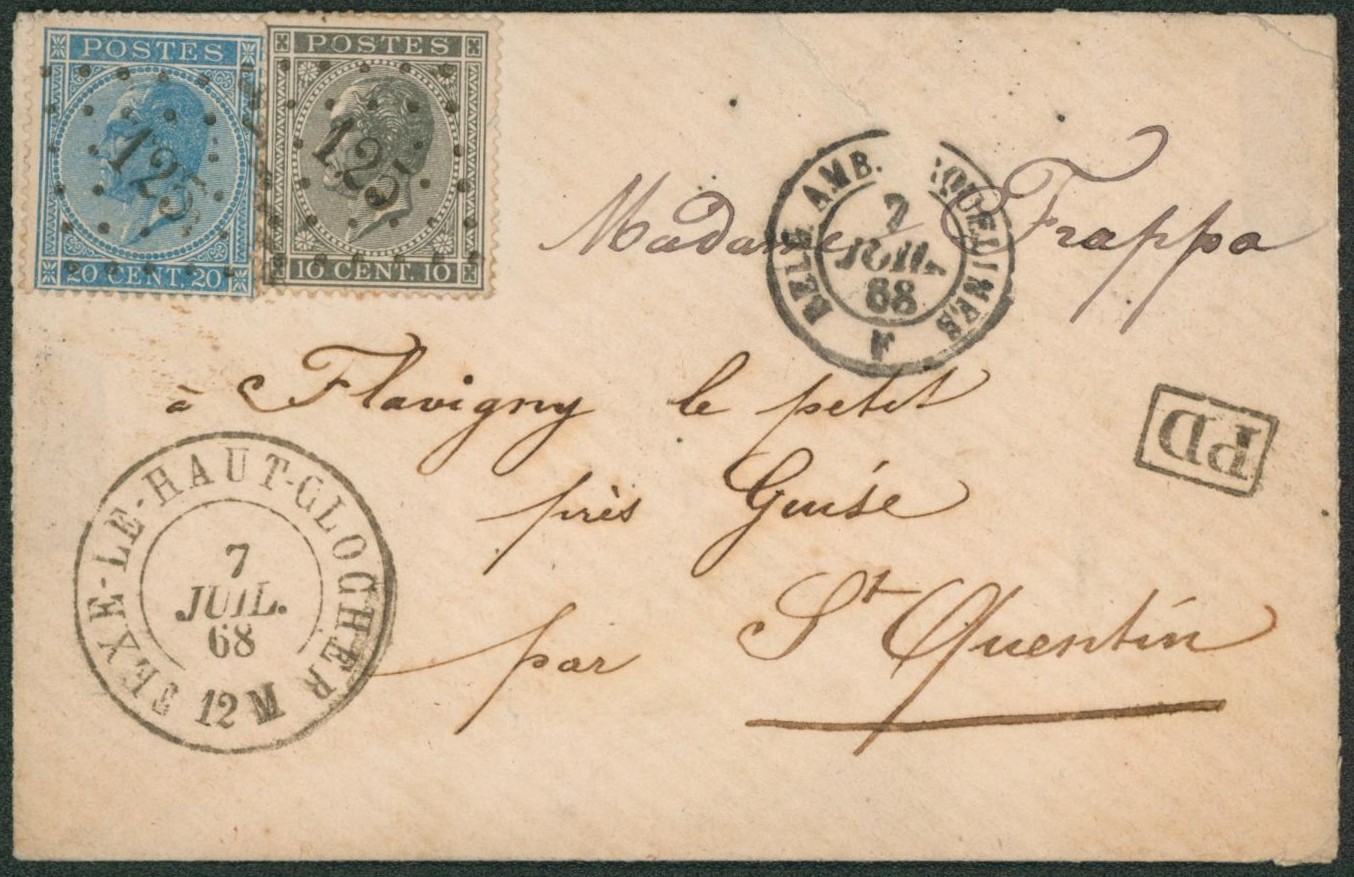 POSTES
20 CENT. 20
125
POSTES
10 CENT. 10
125
BELG. AMB. A
7
JUIL.
68
Madame Frappa
à Flavigny le petit
PD
près Guise
FEXE-LE-HAUT-CLOCHER
7
JUIL.
68
12 M
par St Quentin